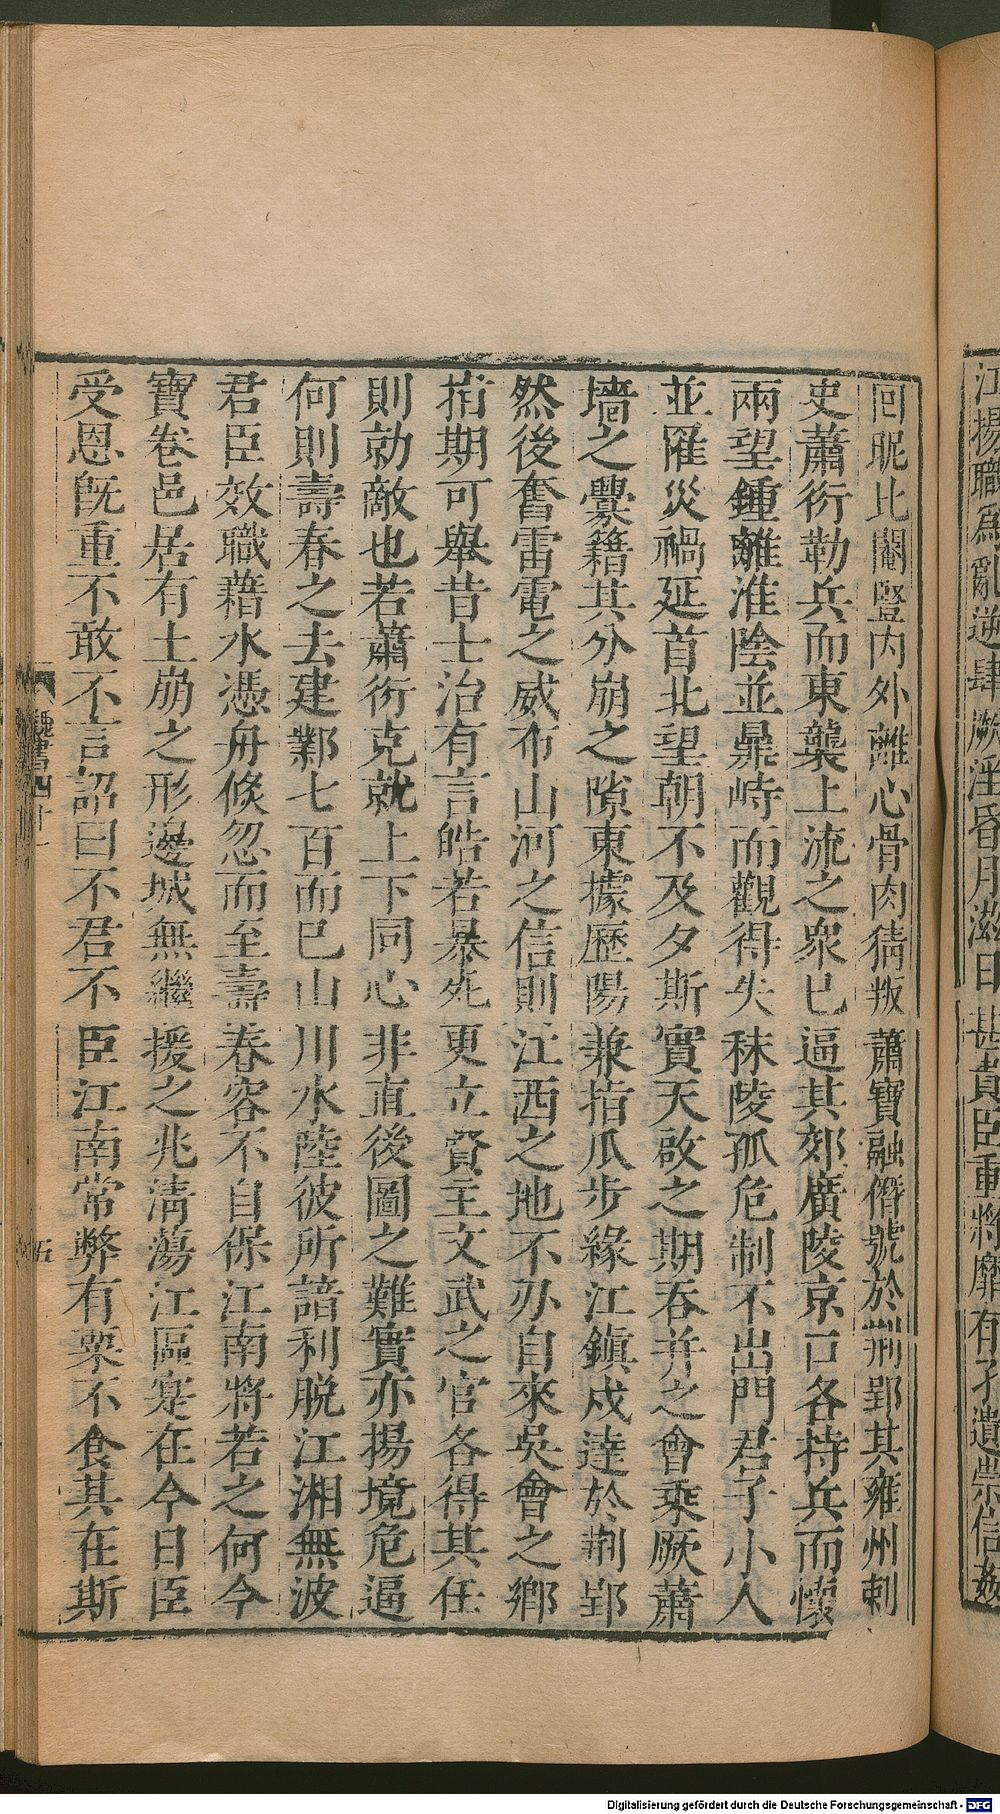 江揚職爲亂逆肆厥淫昏月滋日甚貴臣重將靡有孑遺崇信姦
回昵比閹豎内外離心骨肉猜叛蕭寶融僭號於荆郢其雍州刺
史蕭衍勒兵而東襲上流之衆已逼其郊廣陵京口各持兵而懷
兩望鍾離淮陰並鼎峙而觀得失秣陵孤危制不出門君子小人
並罹災禍延首北望朝不及夕斯實天啟之期吞并之會乘厥蕭
墻之釁籍其分崩之隙東據歷陽兼指瓜步緣江鎮戍達於荆郢
然後奮雷電之威布山河之信則江西之地不刃自來吳會之鄉
指期可舉昔士治有言皓若暴死更立賢主文武之官各得其任
則勍敵也若蕭衍克就上下同心非直後圖之難實亦揚境危逼
何則壽春之去建鄴七百而已山川水陸彼所諳利脱江湘無波
君臣效職藉水憑舟倏忽而至壽春容不自保江南將若之何今
寶卷邑居有土崩之形邊城無繼援之兆淸蕩江區寔在今日臣
受恩旣重不敢不言詔曰不君不臣江南常弊有粟不食其在斯
魏書四十一
五
Digitalisierung gefördert durch die Deutsche Forschungsgemeinschaft - DFG